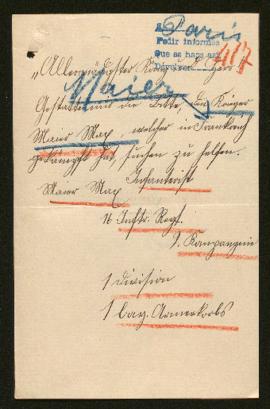 Paris
Pedir informes
Que se haga así
417
Maier
„Allergnädigster König
Gestatten die Bitte, den Krieger
Maier Max, welcher in Frankreich
gekämpft hat, suchen zu helfen.
Maier Max Infanterist
16 Inftr. Regt.
9. Kompagnie
1 Division
1 bay. Armeekorbs